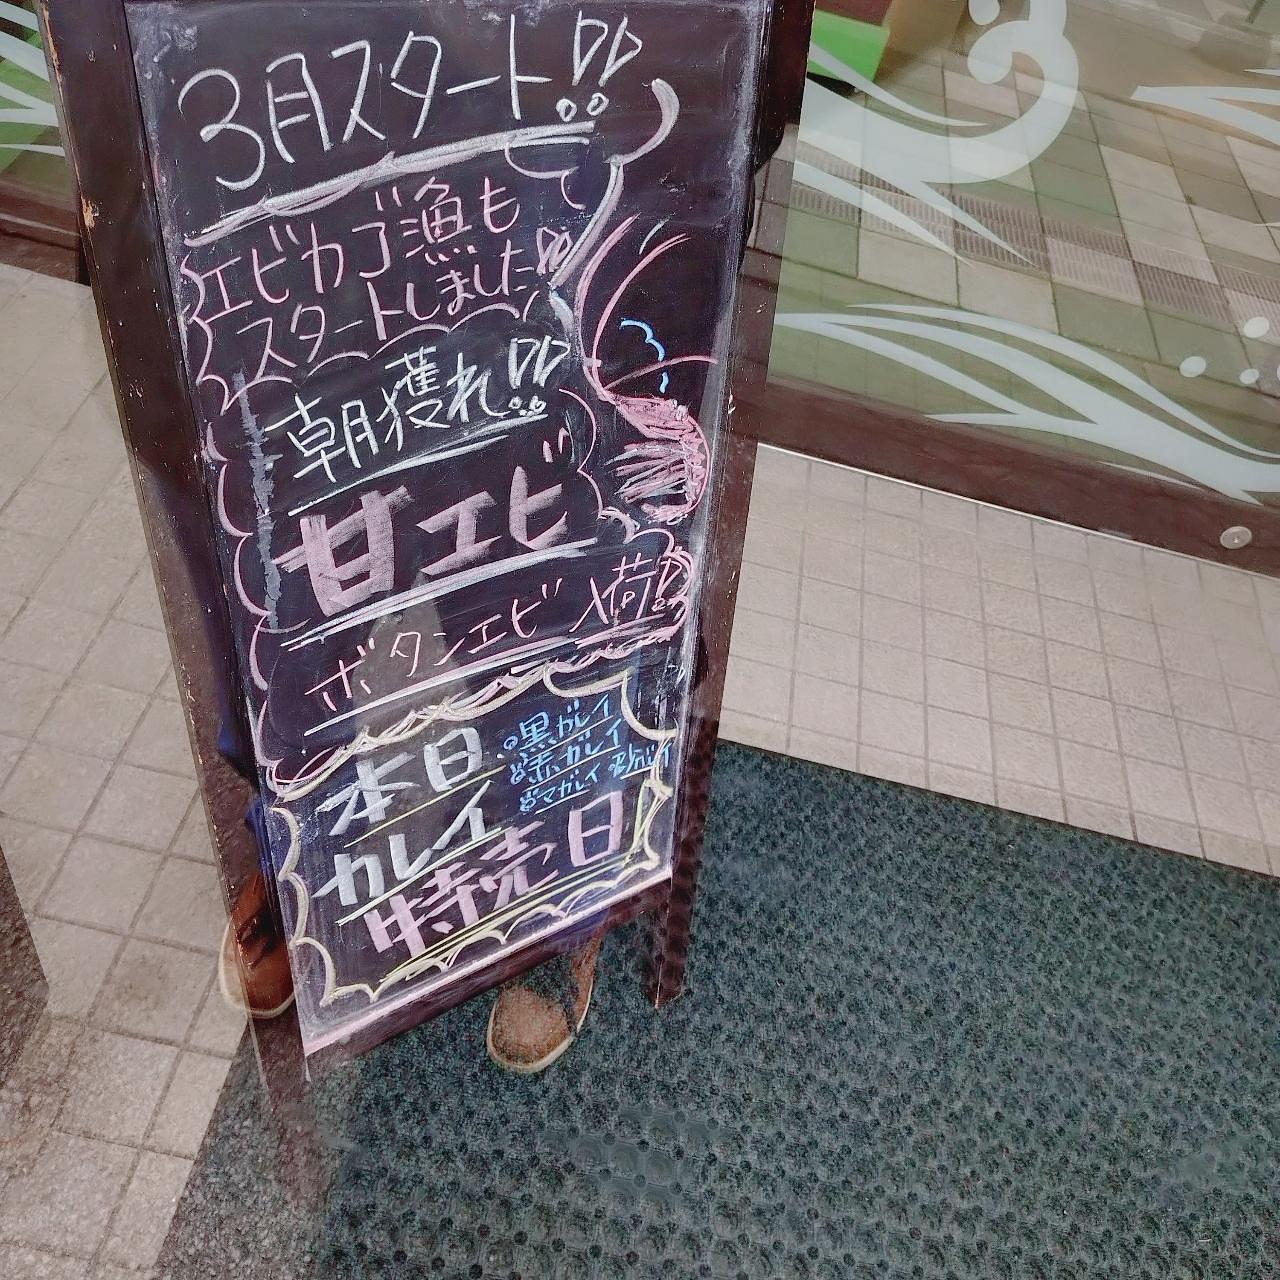 3月スタート!!
エビカゴ漁も
スタートしました!!
朝獲れ!!
甘エビ
ボタンエビ 入荷!!
本日
カレイ
特売日
黒ガレイ
赤ガレイ
マガレイ 砂ガレイ